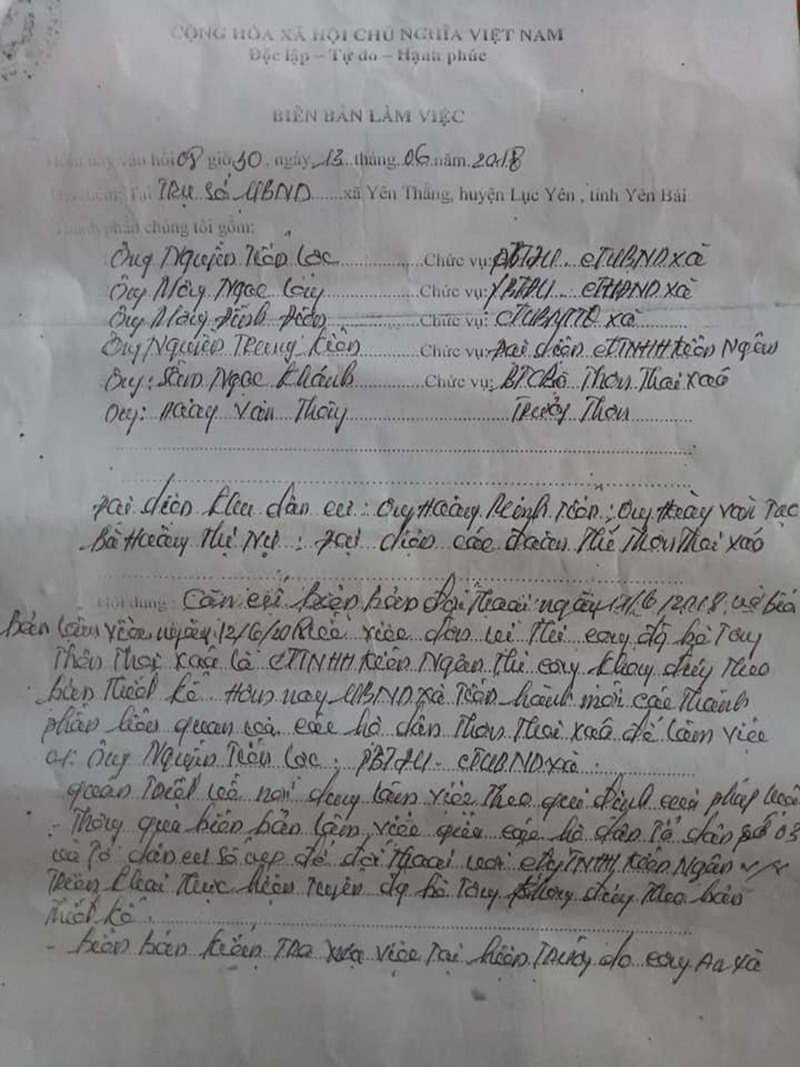 CỘNG HÒA XÃ HỘI CHỦ NGHĨA VIỆT NAM
Độc lập – Tự do – Hạnh phúc
BIÊN BẢN LÀM VIỆC
Hôm nay vào hồi 08 giờ 30, ngày 13 tháng 06 năm 2018
Tại Trụ Sở UBND xã Yên Thắng, huyện Lục Yên, tỉnh Yên Bái
Thành phần chúng tôi gồm:
Ông Nguyễn Tiến Lộc Chức vụ: PBTĐU CTUBND xã
Ông Mông Ngọc Chức vụ: PBTĐU CTHĐND xã
Ông Mông Đình Chức vụ: CTUBMTTQ xã
Ông Nguyễn Trung Kiên Chức vụ: Đại diện CTTNHH Kiên Ngân
Ông: Ngọc Khánh Chức vụ: BTCBộ Thôn
Ông: Hoàng Văn Trưởng Thôn
Đại diện khu dân cư: Ông Hoàng Minh ; Ông Hoàng Văn Tạc
Bà Hoàng Thị Nự : Đại diện các đoàn thể Thôn
Nội dung: Căn cứ biên bản đối thoại ngày /6/2018 và biên
bản làm việc ngày 12/6/20 việc đơn vị thi công
Thôn là CTTNHH Kiên Ngân thi công không đúng theo
bản thiết kế. Hôm nay UBND xã tiến hành mời các thành
phần liên quan và các hộ dân Thôn để làm việc
01: Ông Nguyễn Tiến Lộc: PBTĐU - CTUBND xã:
quán triệt về nội dung làm việc theo qui định của pháp luật
- Thông qua biên bản làm việc giữa các hộ dân Tổ dân số 03
và Tổ dân cư số để đối thoại với CTyTNHH Kiên Ngân V/v
triển khai thực hiện tuyến không đúng theo bản
thiết kế.
- biên bản kiểm tra việc tại hiện trường do công an xã